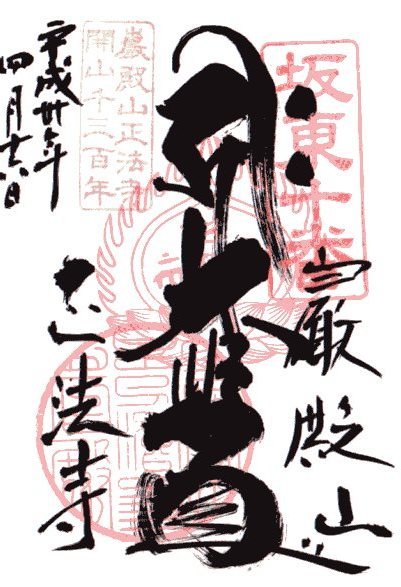 坂東十番
巌殿山
大
巖殿山正法寺
開山千三百年
正法寺
平成卅年
四月十六日